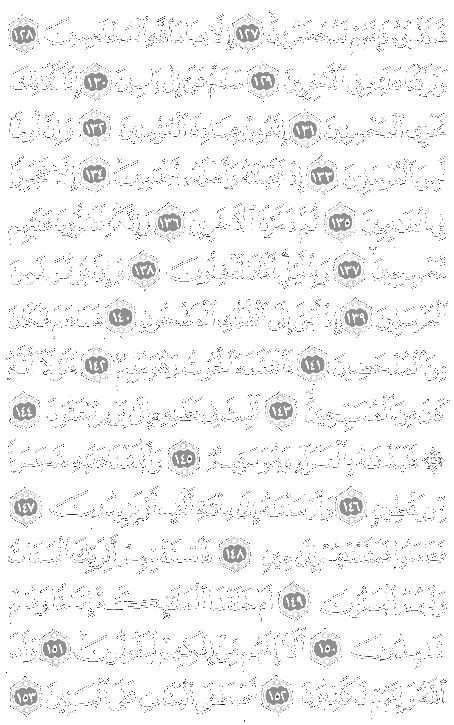 فَكَذَّبُوهُ فَإِنَّهُمْ لَمُحْضَرُونَ ١٢٧ إِلَّا عِبَادَ ٱللَّهِ ٱلْمُخْلَصِينَ ١٢٨
وَتَرَكْنَا عَلَيْهِ فِى ٱلْءَاخِرِينَ ١٢٩ سَلَٰمٌ عَلَىٰٓ إِلْ يَاسِينَ ١٣٠ إِنَّا كَذَٰلِكَ
نَجْزِى ٱلْمُحْسِنِينَ ١٣١ إِنَّهُۥ مِنْ عِبَادِنَا ٱلْمُؤْمِنِينَ ١٣٢ وَإِنَّ لُوطًا
لَّمِنَ ٱلْمُرْسَلِينَ ١٣٣ إِذْ نَجَّيْنَٰهُ وَأَهْلَهُۥٓ أَجْمَعِينَ ١٣٤ إِلَّا عَجُوزًا
فِى ٱلْغَٰبِرِينَ ١٣٥ ثُمَّ دَمَّرْنَا ٱلْءَاخَرِينَ ١٣٦ وَإِنَّكُمْ لَتَمُرُّونَ عَلَيْهِم
مُّصْبِحِينَ ١٣٧ وَبِٱلَّيْلِ أَفَلَا تَعْقِلُونَ ١٣٨ وَإِنَّ يُونُسَ لَمِنَ
ٱلْمُرْسَلِينَ ١٣٩ إِذْ أَبَقَ إِلَى ٱلْفُلْكِ ٱلْمَشْحُونِ ١٤٠ فَسَاهَمَ فَكَانَ
مِنَ ٱلْمُدْحَضِينَ ١٤١ فَٱلْتَقَمَهُ ٱلْحُوتُ وَهُوَ مُلِيمٌ ١٤٢ فَلَوْلَآ أَنَّهُۥ
كَانَ مِنَ ٱلْمُسَبِّحِينَ ١٤٣ لَلَبِثَ فِى بَطْنِهِۦٓ إِلَىٰ يَوْمِ يُبْعَثُونَ ١٤٤
۞ فَنَبَذْنَٰهُ بِٱلْعَرَآءِ وَهُوَ سَقِيمٌ ١٤٥ وَأَنۢبَتْنَا عَلَيْهِ شَجَرَةً
مِّن يَقْطِينٍ ١٤٦ وَأَرْسَلْنَٰهُ إِلَىٰ مِا۟ئَةِ أَلْفٍ أَوْ يَزِيدُونَ ١٤٧
فَـَٔامَنُوا۟ فَمَتَّعْنَٰهُمْ إِلَىٰ حِينٍ ١٤٨ فَٱسْتَفْتِهِمْ أَلِرَبِّكَ ٱلْبَنَاتُ
وَلَهُمُ ٱلْبَنُونَ ١٤٩ أَمْ خَلَقْنَا ٱلْمَلَٰٓئِكَةَ إِنَٰثًا وَهُمْ
شَٰهِدُونَ ١٥٠ أَلَآ إِنَّهُم مِّنْ إِفْكِهِمْ لَيَقُولُونَ ١٥١ وَلَدَ
ٱللَّهُ وَإِنَّهُمْ لَكَٰذِبُونَ ١٥٢ أَصْطَفَى ٱلْبَنَاتِ عَلَى ٱلْبَنِينَ ١٥٣